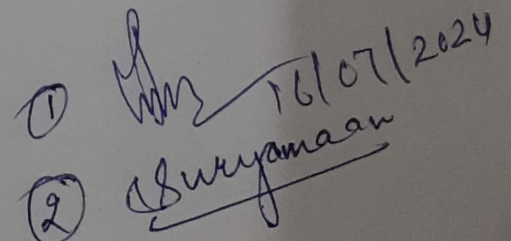 ① 16/07/2024
② Suryamaan